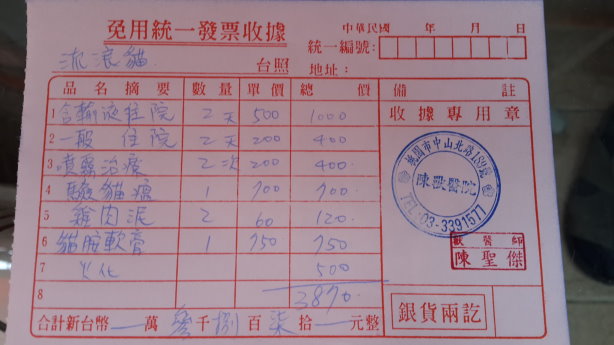 免用統一發票收據
中華民國 年 月 日
統一編號:
流浪貓 台照 地址:
品名摘要 數量 單價 總價 備註
1 含輸液住院 2天 500 1000
收據專用章
2 一般 住院 2天 200 400
3 噴霧治療 2次 200 400
4 驗貓瘟 1 700 700
5 雞肉泥 2 60 120
6 貓 軟膏 1 750 750
7 火化 500
8 3870
桃園市中山北路189號
陳獸醫院
TEL:03-3391577
獸醫師
陳聖傑
合計新台幣 萬 參千捌百柒拾 元整
銀貨兩訖